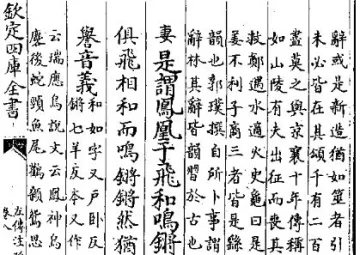 辭或是新造猶如筮者引
未必皆在其頌千有二百
盡莫之與京襄十年傳稱
如山陵有夫出征而喪其
救鄭遇水適火史龜曰是
姜不利子商三者皆是繇
韻也郭璞撰自所卜事謂
辭林其辭皆韻習於古也
妻是謂鳳凰于飛和鳴鏘
俱飛相和而鳴鏘鏘然猶
譽音義和如字又戶卧反
鏘七羊反本又作
云瑞應鳥說文云鳳神鳥
麐後蛇頸魚尾鸛顙鴛思
欽定四庫全書
左傳注疏
卷八